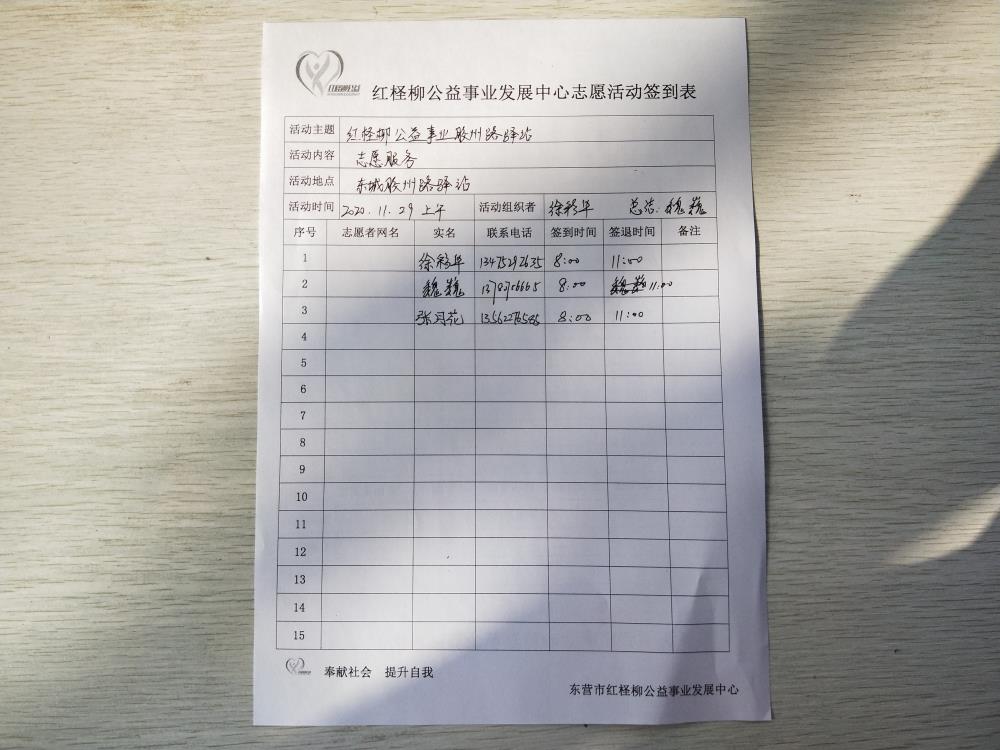 红柽柳公益
红柽柳公益事业发展中心志愿活动签到表
活动主题 红柽柳公益事业胶州路驿站
活动内容 志愿服务
活动地点 东城胶州路驿站
活动时间 2020.11.29 上午 活动组织者 徐彩华 总结:魏巍
序号 志愿者网名 实名 联系电话 签到时间 签退时间 备注
1 徐彩华 13475292635 8:00 11:00
2 魏巍 8:00 11:00
3 张月花 8:00 11:00
4
5
6
7
8
9
10
11
12
13
14
15
奉献社会 提升自我
东营市红柽柳公益事业发展中心